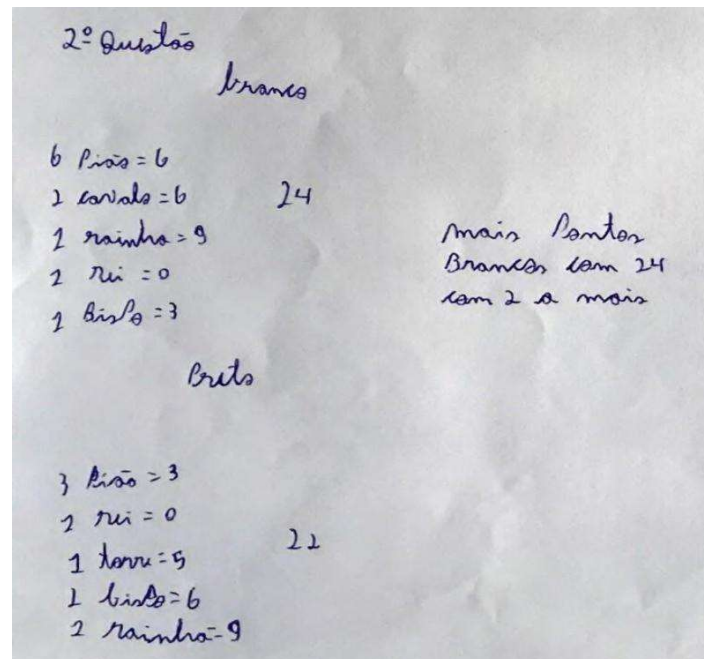 2º Questão
branco
6 Pião = 6
2 cavalo = 6
24
1 rainha = 9
1 rei = 0
1 Bispo = 3
mais Pontos
Brancos com 24
com 2 a mais
Preto
3 Pião = 3
1 rei = 0
22
1 torre = 5
2 bispo = 6
1 rainha = 9